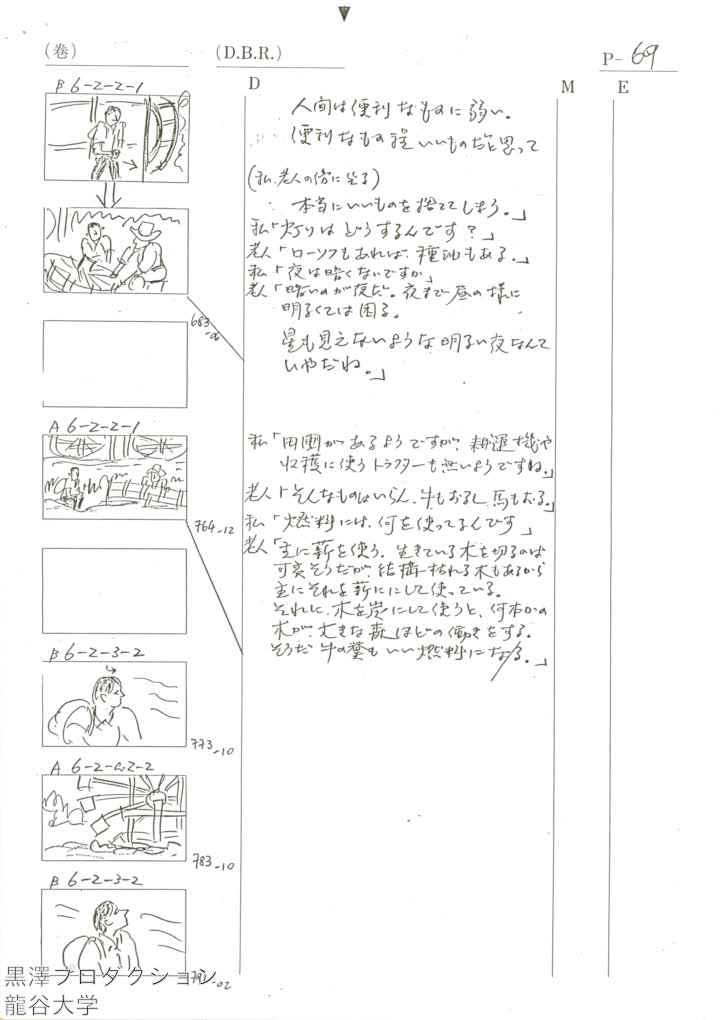 (巻)
(D.B.R.)
P- 69
D
M
E
B 6-2-2-1
人間は便利なものに弱い。
便利なもの程いいものだと思って
(私、老人の傍に坐る)
本当にいいものを捨ててしまう。」
私「灯りはどうするんです?」
老人「ローソクもあれば、種油もある。」
私「夜は暗くないですか」
老人「暗いのが夜だ。夜まで昼の様に
明るくては困る。
星も見えないような明るい夜なんて
いやだね。」
683
A 6-2-2-1
764-12
私「田圃があるようですが、耕運機や
収穫に使うトラクターも無いようですね。」
老人「そんなものはいらん、牛もおるし、馬もおる。」
私「燃料には、何を使ってるんです」
老人「主に薪を使う、生きている木を切るのは
可哀そうだが、結構枯れる木もあるから
主にそれを薪ににして使っている。
それに、木を炭にして使うと、何本かの
木が、大きな森ほどの働きをする。
そうだ 牛の糞もいい燃料になる。」
B 6-2-3-2
773-10
A 6-2-2-2
783-10
B 6-2-3-2
-02
黒澤プロダクション
龍谷大学